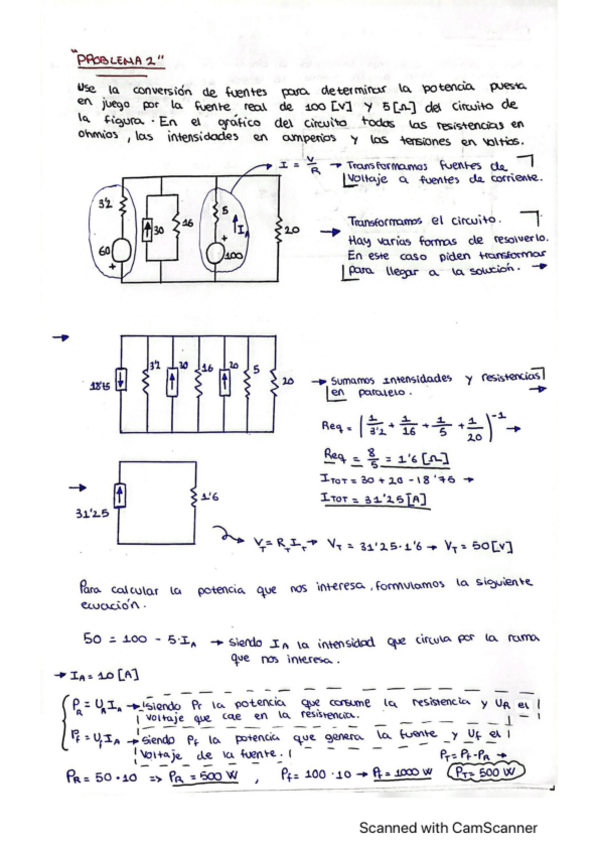 "PROBLEMA 2"
Use la conversión de fuentes para determinar la potencia puesta
en juego por la fuente real de 100 [V] y 5 [Ω] del circuito de
la figura. En el gráfico del circuito todas las resistencias en
ohmios, las intensidades en amperios y las tensiones en voltios.
→ I = V/R → Transformamos fuentes de
voltaje a fuentes de corriente.
3'2
60
+
30
16
5
IA
+
100
20
→ Transformamos el circuito.
Hay varias formas de resolverlo.
En este caso piden transformar
para llegar a la solución. →
→
18'75
3'2
30
16
20
5
20
→ Sumamos intensidades y resistencias
en paralelo. →
Req = (1/3'2 + 1/16 + 1/5 + 1/20)^-1 →
Req = 8/5 = 1'6 [Ω]
ITOT = 30 + 20 - 18'75 →
ITOT = 31'25 [A]
→
31'25
1'6
→ VT = RT IT → VT = 31'25 · 1'6 → VT = 50 [V]
Para calcular la potencia que nos interesa, formulamos la siguiente
ecuación.
50 = 100 - 5·IA → siendo IA la intensidad que circula por la rama
que nos interesa.
→ IA = 10 [A]
PR = UR IA → Siendo Pr la potencia que consume la resistencia y UR el
voltaje que cae en la resistencia.
Pf = Uf IA → siendo Pf la potencia que genera la fuente y Uf el
voltaje de la fuente.
PT = Pf - PR →
PR = 50 · 10 => PR = 500 W , Pf = 100 · 10 → Pf = 1000 W PT = 500 W
Scanned with CamScanner